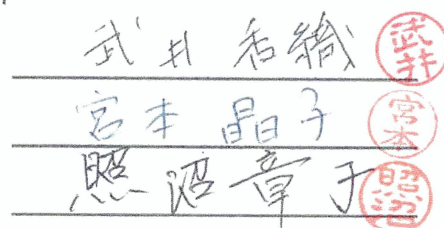 武井 香織 武井
宮本 晶子 宮本
照沼 章子 照沼